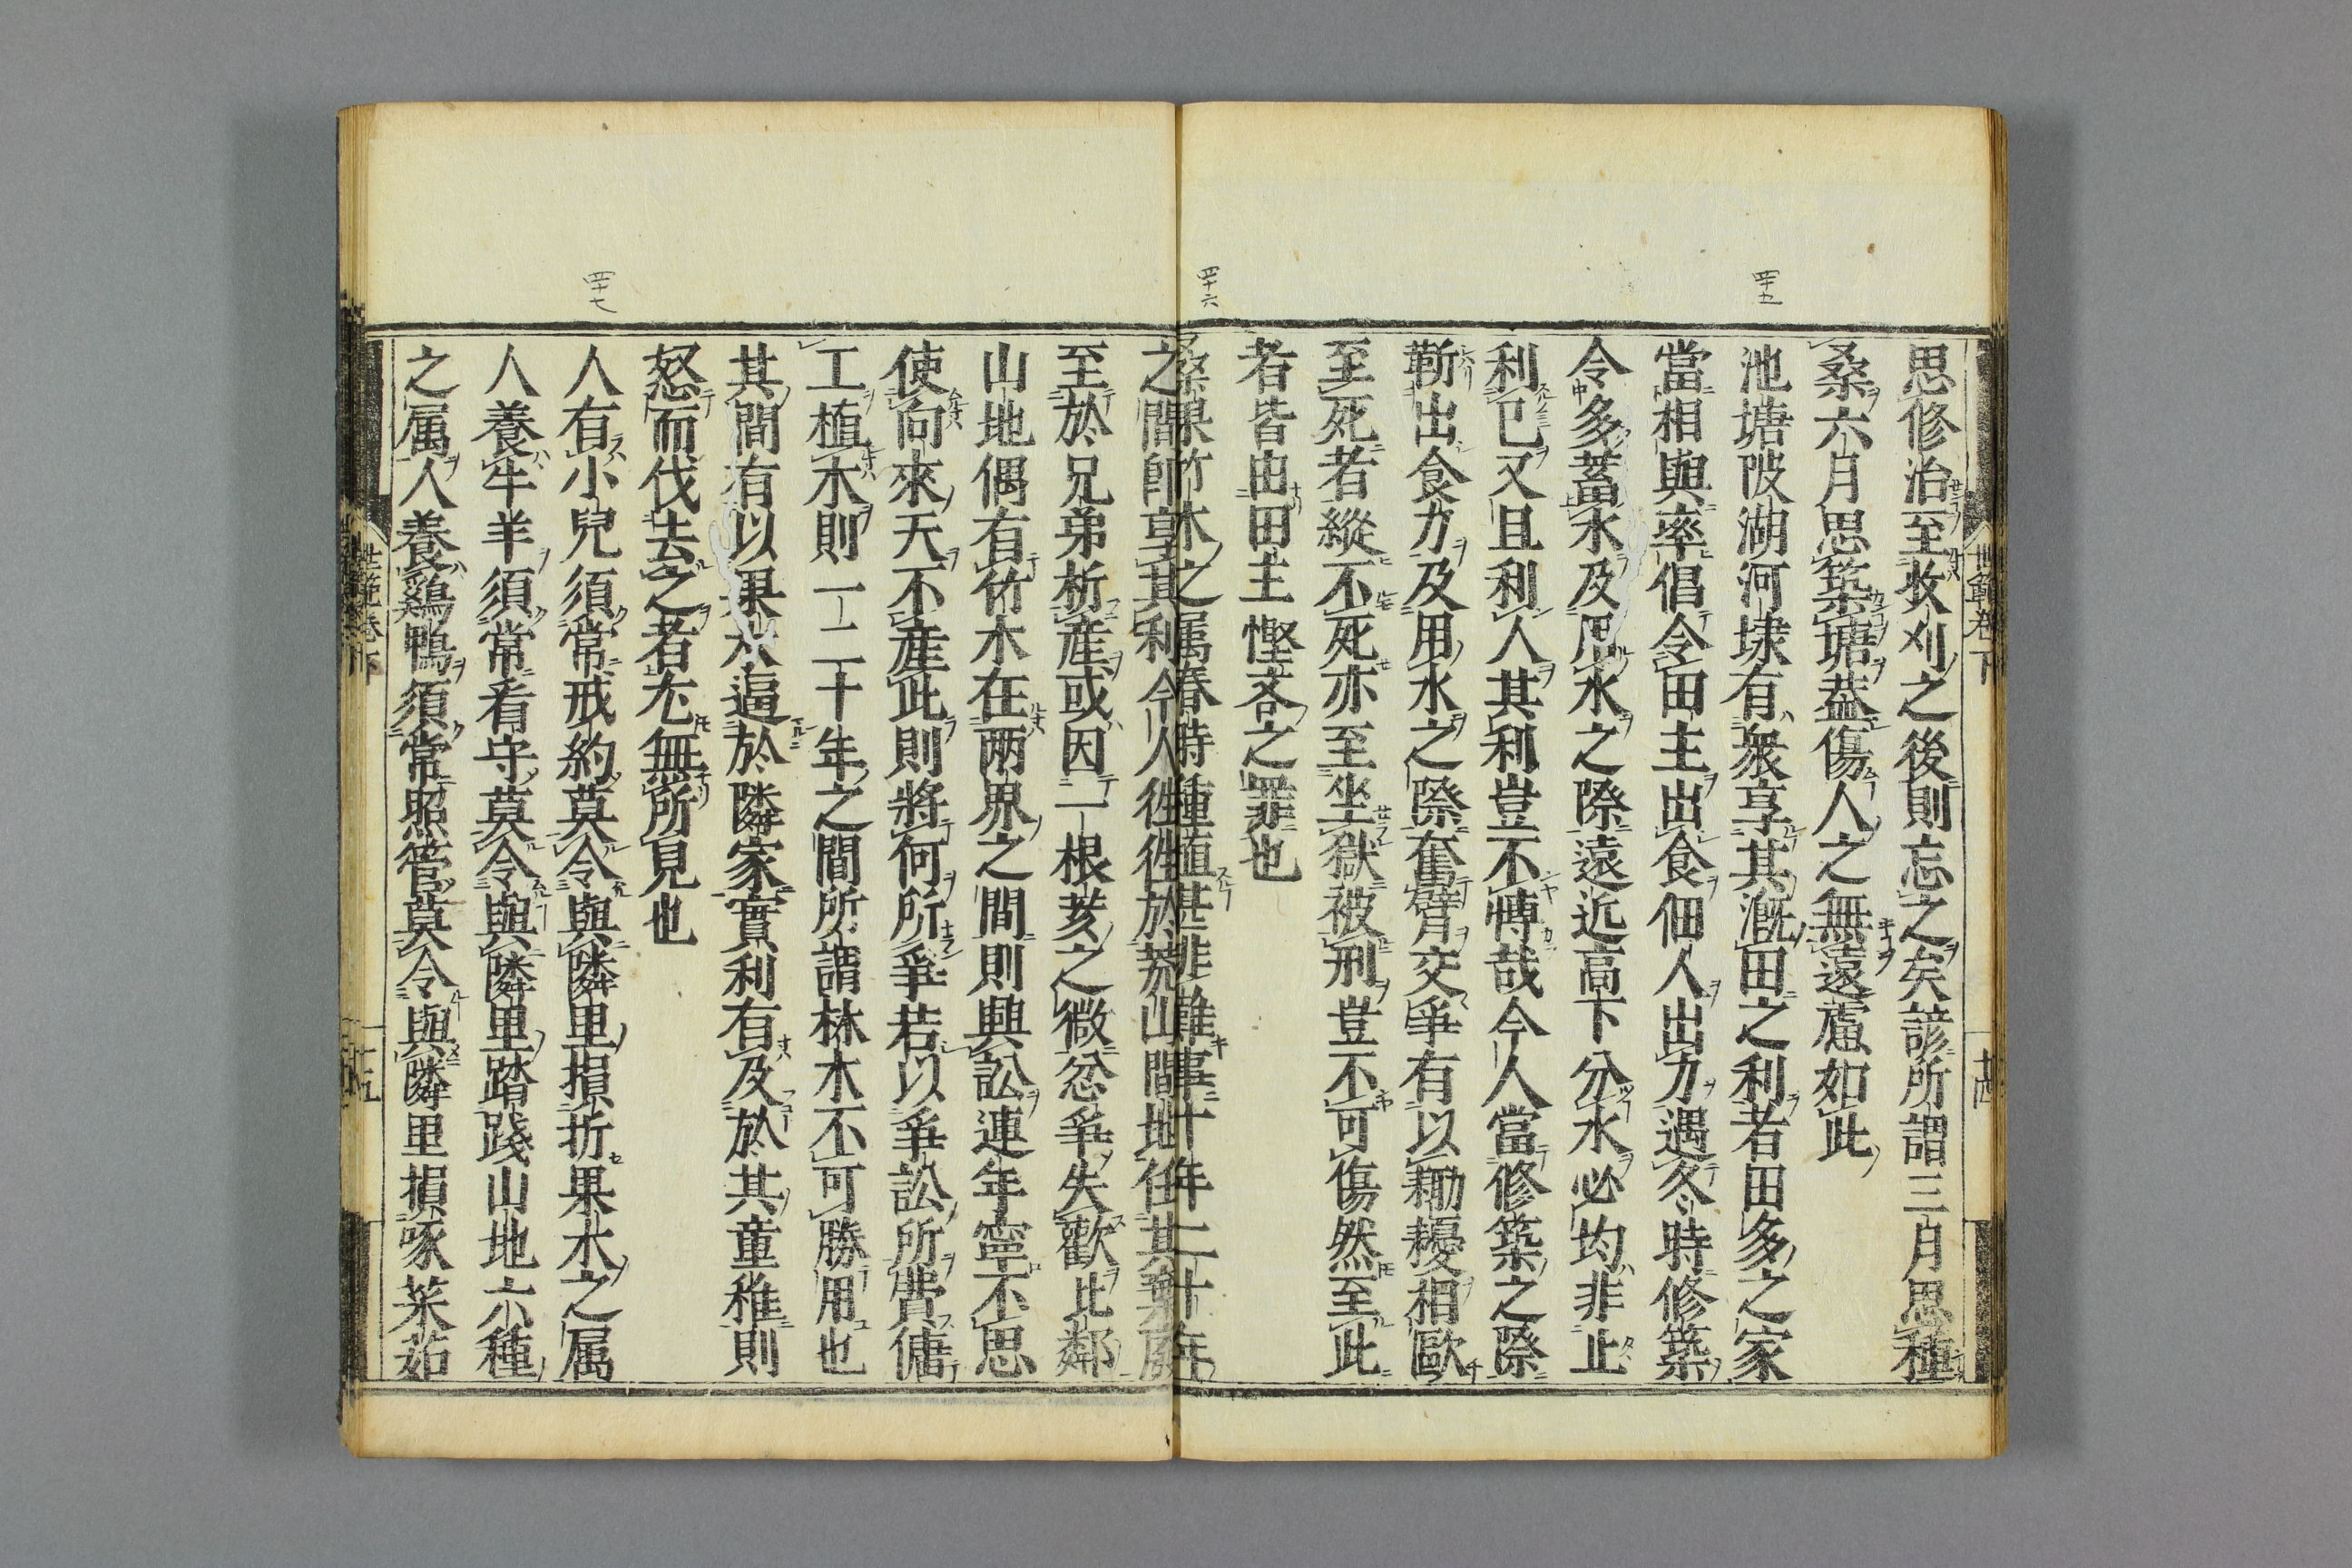 世範卷下
十四
四十五
四十六
思修治至收刈之後則忘之矣諺所謂三月思種
桑六月思築塘蓋傷人之無遠慮如此
池塘陂湖河埭有衆享其漑田之利者田多之家
當相與率倡令田主出食佃人出力遇冬時修築
令多蓄水及用水之際遠近高下分水必均非止
利已又且利人其利豈不博哉今人當修築之際
靳出食力及用水之際奮臂交爭有以耡耰相歐
至死者縱不死亦至坐獄被刑豈不可傷然至此
者皆由田主慳吝之罪也
桑果竹木之属春時種植甚非難事十年二十年
之間卽享其利今人徃徃於荒山間地任其棄廢
至於兄弟析產或因一根荄之微忿爭失歡比鄰
山地偶有竹木在兩界之間則興訟連年寧不思
使向來天不產此則將何所爭若以爭訟所費傭
工植木則一二十年之間所謂林木不可勝用也
其間有以果木逼於隣家實利有及於其童稚則
怒而伐去之者尤無所見也
人有小兒須常戒約莫令與隣里損折果木之属
人養牛羊須常看守莫令與隣里踏踐山地六種
之属人養鷄鴨須常照管莫令與隣里損啄菜茹
四十七
世範卷下
十五